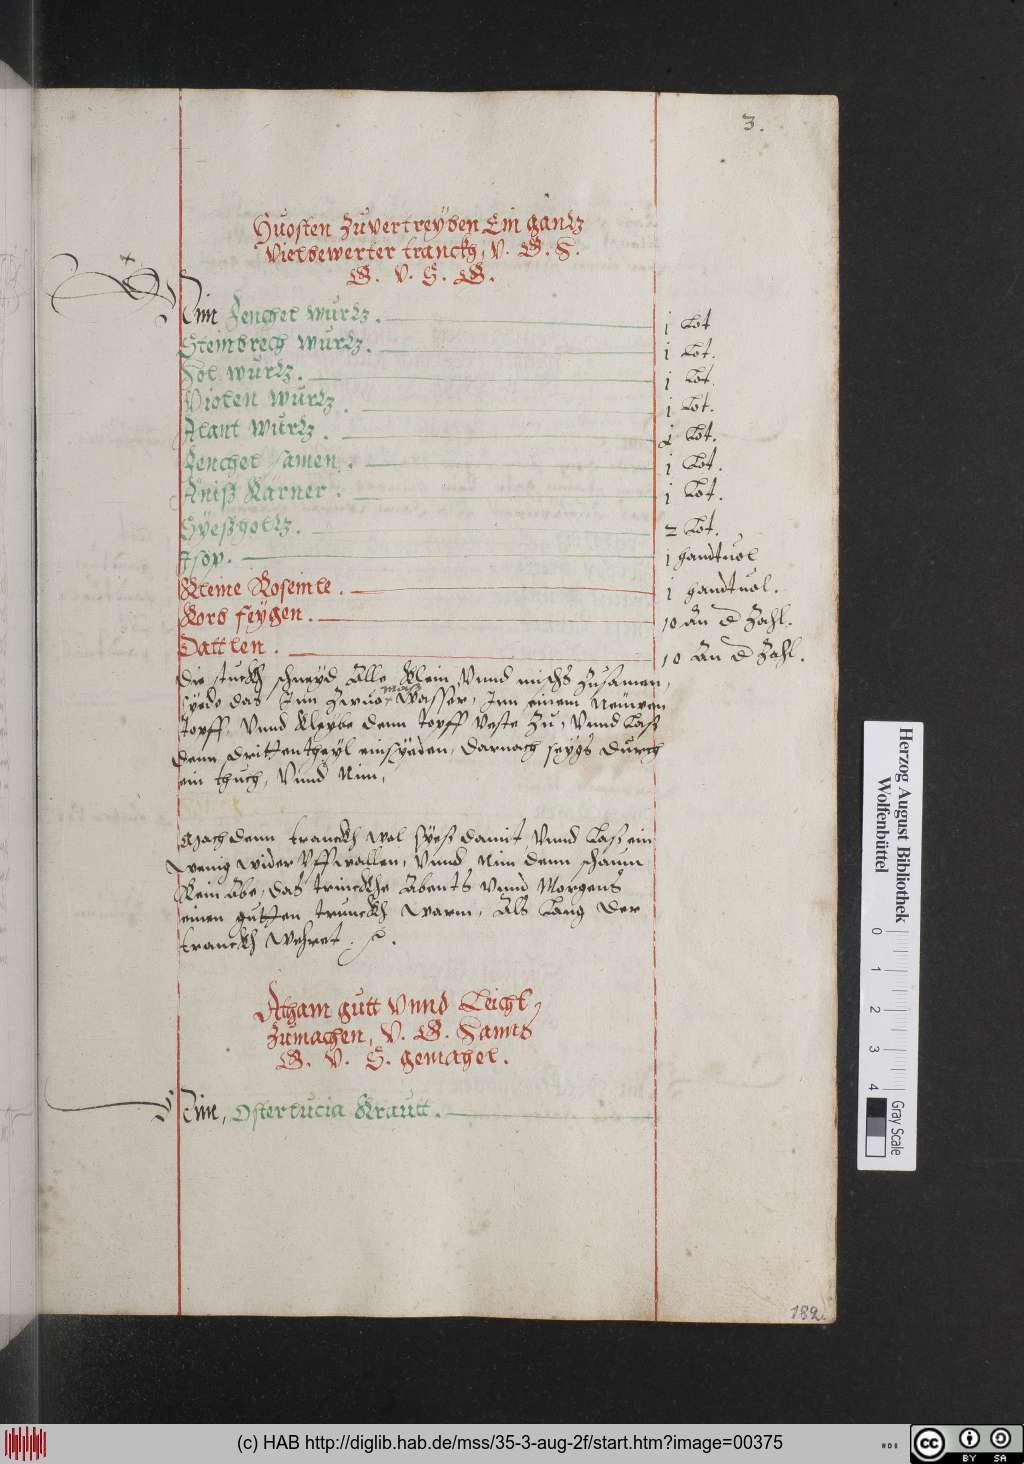 3.
Huosten Zuvertreyben Ein gantz
Vielbewerter tranckh, V. G. F.
G. V. H. G.
Nim Fenchel wurtz. j Lot
Steinbrech wurtz. j Lot.
Hol wurtz. j Lot
Violen wurtz. j Lot.
Alant wurtz. j Lot.
Fenchel samen. j Lot.
Aniß Kärner. j Lot.
Syeßholtz. 2 Lot.
Isop. j handtuol
Kleine Roseinle. j handtuol.
Korb feygen. 10 An d Zahl.
Dattlen. 10 An d Zahl.
Die stuckh schneyd Alle Klein Vnnd mischs Zusamen,
syede das Inn Zwuo mas Wasser, Inn einem Neuwen
topff, Vnnd kleybe denn topff Veste Zu, Vnnd Laß
denn drittentheyl einsyeden, darnach seygs durch
ein thuch, Vnnd Nim,
Mach denn tranckh wol syeß damit, Vnnd Laß ein
wenig wider Vffwallen, Vnnd Nim denn schaum
Rein Abe, das trinckhe Abents Vnnd Morgens
einen gutten trunckh warm, Als Lang der
tranckh wehret.
Atham gutt Vnnd Leicht
Zumachen, V. G. Hanns
G. V. H. gemahel.
Nim, Osterlucia Krautt.
182.
Herzog August Bibliothek
Wolfenbüttel
0 1 2 3 4
Gray Scale
(c) HAB http://diglib.hab.de/mss/35-3-aug-2f/start.htm?image=00375
cc BY SA